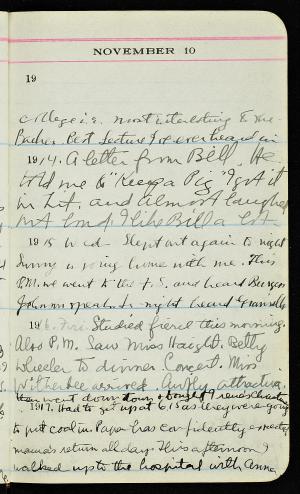 NOVEMBER 10
19
college i.e. most interesting & Mr.
Best lecture I've ever heard in
1914. A letter from Bill. He
told me to "Keep a Pig" I got it
in Lit. and almost laughed
out loud. I like Bill a lot
1915 Wed. Slept out again to night
Sunny is going home with me. This
P.M. we went to the and heard
Johnson speak. To night heard Granville
1916. Fri. Studied fierce this morning.
Also P.M. Saw Miss Haight. Betty
Wheeler to dinner. Concert. Miss
Witherbee arrived. Awfly attractive.
then went down town & bought
1917. Had to get up at 6.15 as they were going
to put coal in. Papa has confidently expected
mama's return all day. This afternoon I
walked up to the hospital with Anna